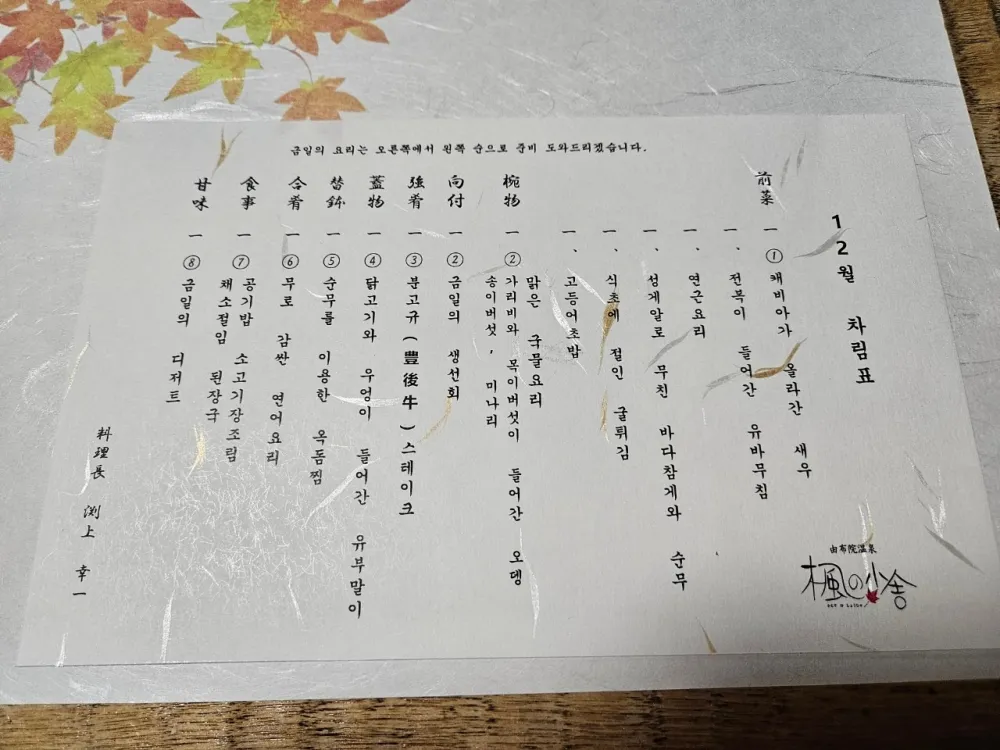 금일의 요리는 오른쪽에서 왼쪽 순으로 준비 도와드리겠습니다.
12월 차림표
前菜 一 ① 캐비아가 올라간 새우
一、 전복이 들어간 유바무침
一、 연근요리
一、 성게알로 무친 바다참게와 순무
一、 식초에 절인 굴튀김
一、 고등어초밥
椀物 一 ② 맑은 국물요리
가리비와 목이버섯이 들어간 오뎅
송이버섯, 미나리
向付 一 ② 금일의 생선회
強肴 一 ③ 분고규(豊後牛)스테이크
蓋物 一 ④ 닭고기와 우엉이 들어간 유부말이
替鉢 一 ⑤ 순무를 이용한 옥돔찜
合肴 一 ⑥ 무로 감싼 연어요리
食事 一 ⑦ 공기밥 소고기장조림
채소절임 된장국
甘味 一 ⑧ 금일의 디저트
料理長 渕上 幸一
由布院温泉
楓の小舎